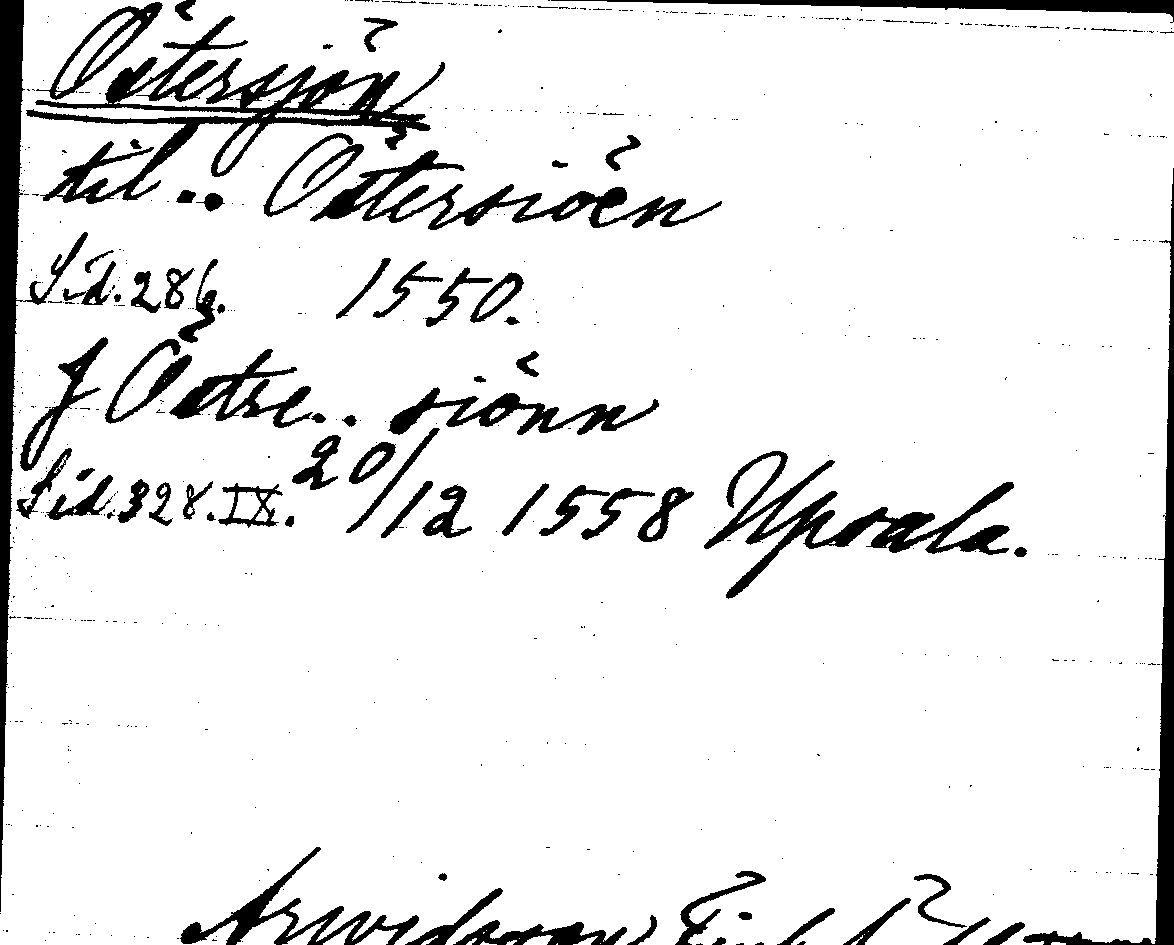 Östersjön
til.. Östersiöen
Sid. 286. 1550.
J Östre.. siönn
Sid. 328. IX. 20/12 1558 Upsala.
Arwidsson